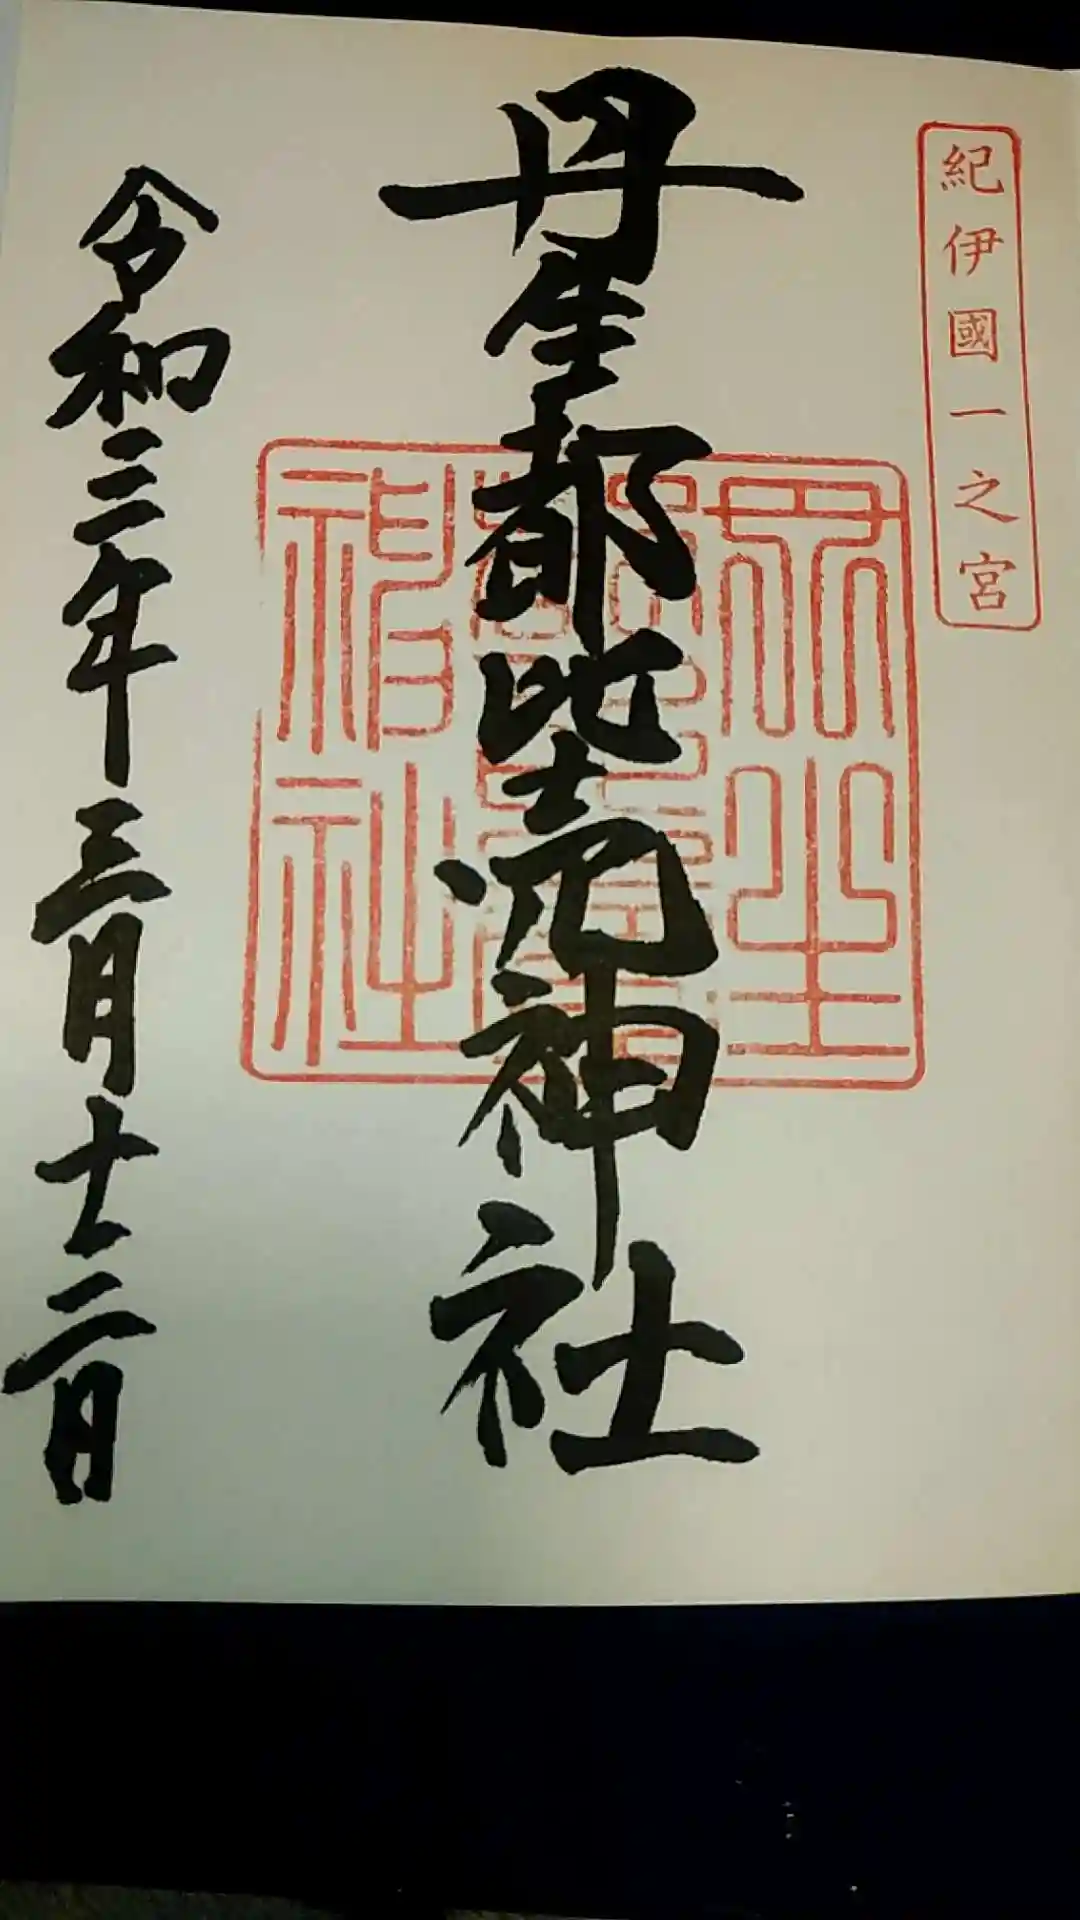 紀伊國一之宮
丹生都比売神社
令和三年三月十二日
丹生
神社